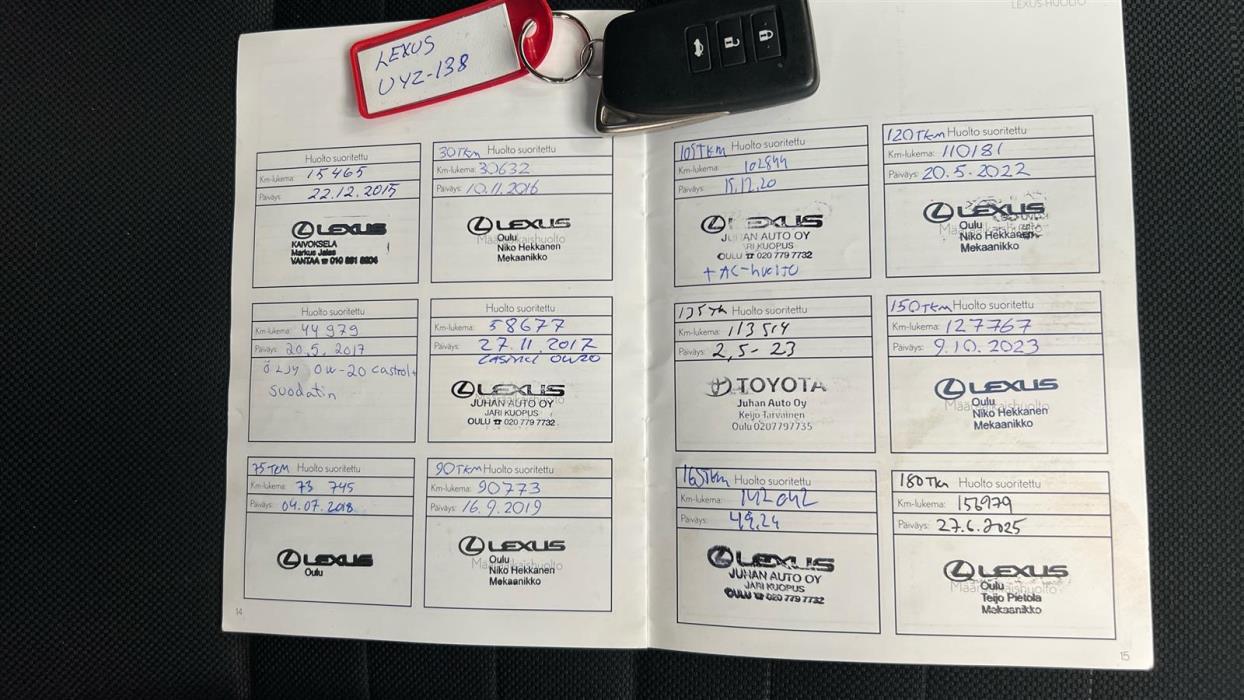 LEXUS-HUOLTO
LEXUS
UYZ-138
Huolto suoritettu
Km-lukema: 15465
Päiväys: 22.12.2015
LEXUS
KAIVOKSELA
Markus Jalas
VANTAA ☎ 010 851 8204
30TKm Huolto suoritettu
Km-lukema: 30632
Päiväys: 10.11.2016
LEXUS
Oulu
Niko Hekkanen
Mekaanikko
Huolto suoritettu
Km-lukema: 44 979
Päiväys: 20.5.2017
ÖLJY 0W-20 castrol+
suodatin
Huolto suoritettu
Km-lukema: 58677
Päiväys: 27.11.2017
0W20
LEXUS
JUHAN AUTO OY
JARI KUOPUS
OULU ☎ 020 779 7732
75TKM Huolto suoritettu
Km-lukema: 73 745
Päiväys: 04.07.2018
LEXUS
Oulu
90TKM Huolto suoritettu
Km-lukema: 90773
Päiväys: 16.9.2019
LEXUS
Oulu
Niko Hekkanen
Mekaanikko
14
105TKM Huolto suoritettu
Km-lukema: 102844
Päiväys: 15.12.20
LEXUS
JUHAN AUTO OY
JARI KUOPUS
OULU ☎ 020 779 7732
+ AC-huolto
120TKm Huolto suoritettu
Km-lukema: 110181
Päiväys: 20.5.2022
LEXUS
Oulu
Niko Hekkanen
Mekaanikko
Huolto suoritettu
Km-lukema: 113514
Päiväys: 2,5-23
TOYOTA
Juhan Auto Oy
Keijo Tarvainen
Oulu 0207797735
150TKm Huolto suoritettu
Km-lukema: 127767
Päiväys: 9.10.2023
LEXUS
Oulu
Niko Hekkanen
Mekaanikko
165TKm Huolto suoritettu
Km-lukema: 142042
Päiväys: 4.9.24
LEXUS
JUHAN AUTO OY
JARI KUOPUS
OULU ☎ 020 779 7732
180TKm Huolto suoritettu
Km-lukema: 156979
Päiväys: 27.6.2025
LEXUS
Oulu
Teijo Pietola
Mekaanikko
15